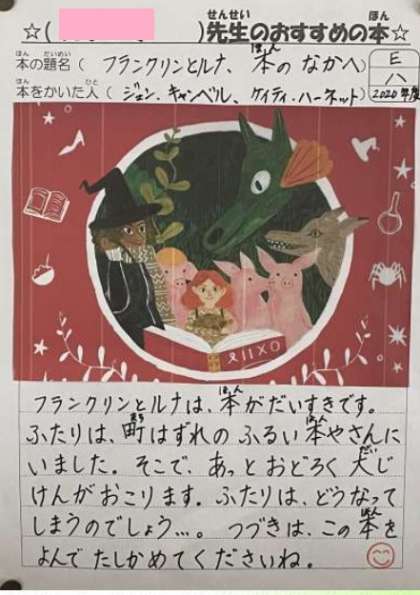 ☆( )先生のおすすめの本☆
本の題名( フランクリンとルナ、本のなかへ)
E
ハ
本をかいた人( ジェン・キャンベル、ケイティ・ハーネット)
2020年度
フランクリンとルナは、本がだいすきです。
ふたりは、町はずれのふるい本やさんに
いました。そこで、あっとおどろく大じ
けんがおこります。ふたりは、どうなって
しまうのでしょう…。つづきは、この本を
よんでたしかめてくださいね。